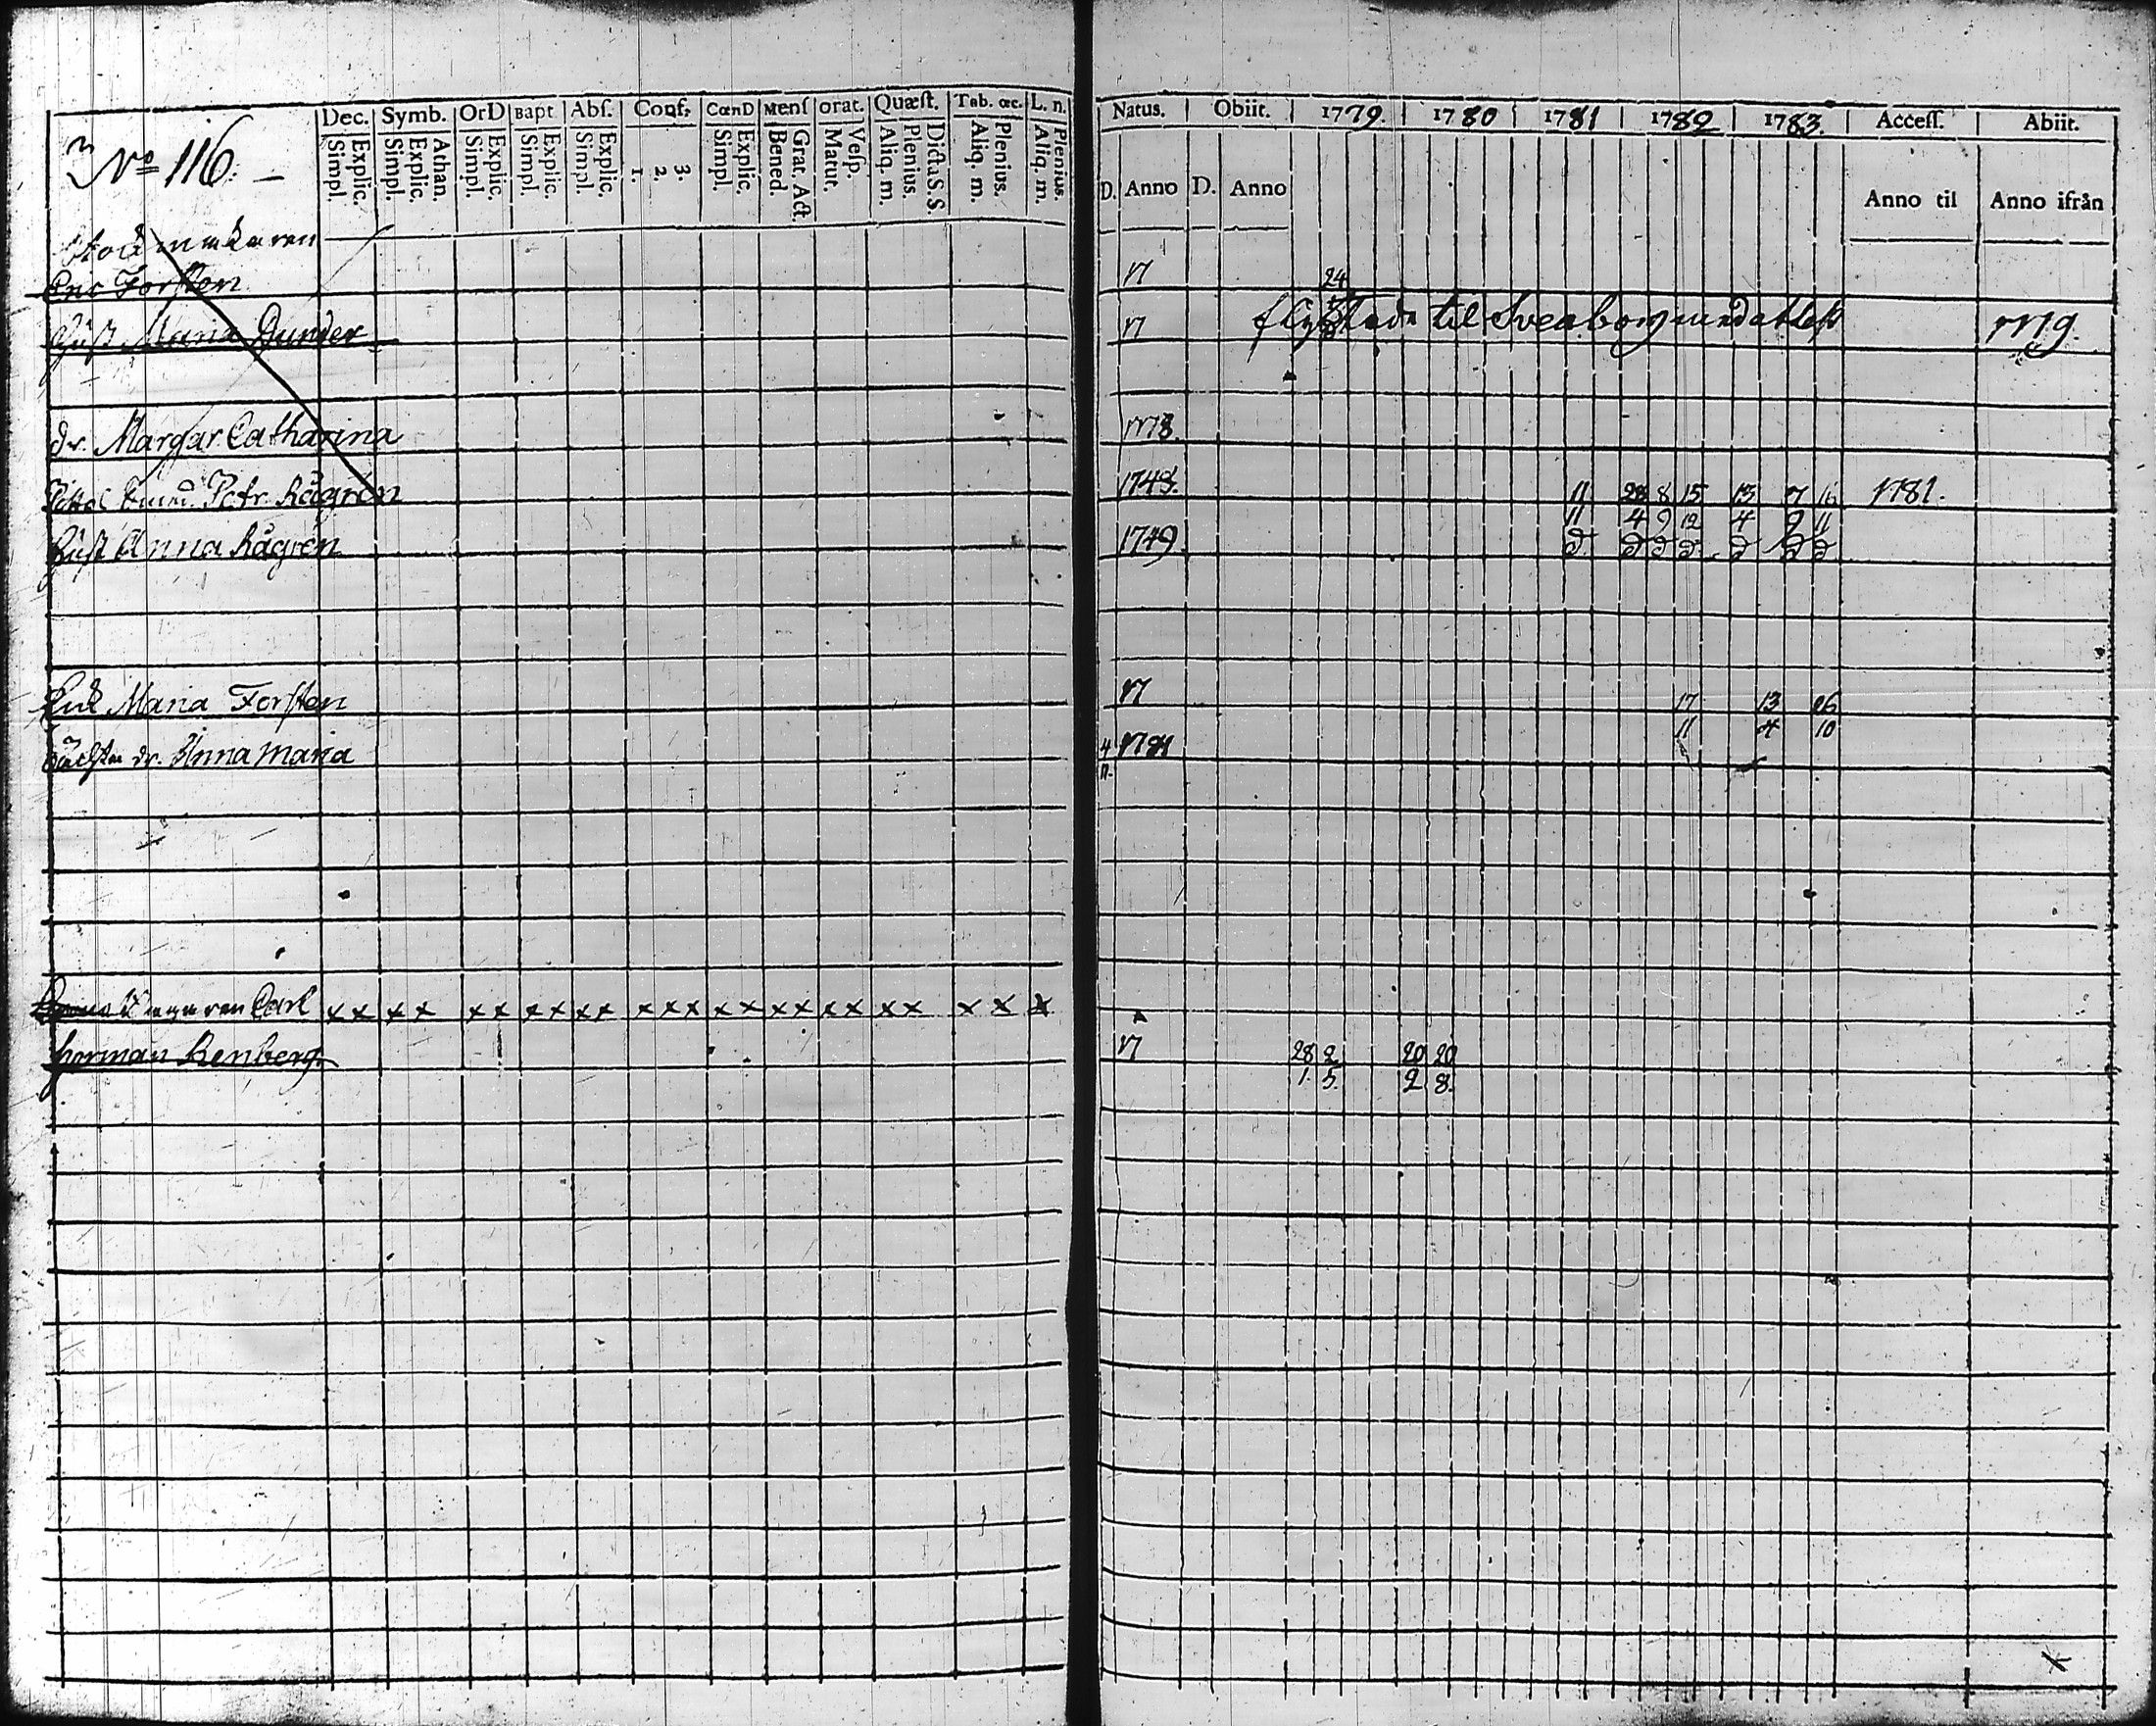 Dec. Symb. OrD Bapt Abſ. Conf. CœnD Menſ orat. Quæſt. Tab. œc. L. n. Natus. Obiit. 1779. 1780 1781 1782 1783. Acceſſ. Abiit.
3 No 116. Simpl. Explic. Simpl. Explic. Athan. Simpl. Explic. Simpl. Explic. Simpl. Explic. 1. 2. 3. Simpl. Explic. Bened. Grat. Act. Matut. Veſp. Aliq. m. Plenius. Dicta S. S. Aliq. m. Plenius. Aliq. m. Plenius. D. Anno D. Anno Anno til Anno ifrån
Forsten 17 24
Hust Maria Dunder 17 flyttade til Sveaborg med attest 1779.
dr. Margar Catharina 1778.
Petr. Rågren 1748. 11 28 8 15 13 7 16 1781.
11 4 9 12 4 9 11
Hust Anna Rågren 1749. d. d d d. d d d
Maria Forsten 17 17 13 26
11 4 10
dr. Anna Maria 4 1781
11.
Carl x x x x x x x x x x x x x x x x x x x x x x x x
Herman Renberg. 17 28 2 20 20
1. 5. 2 8.
x